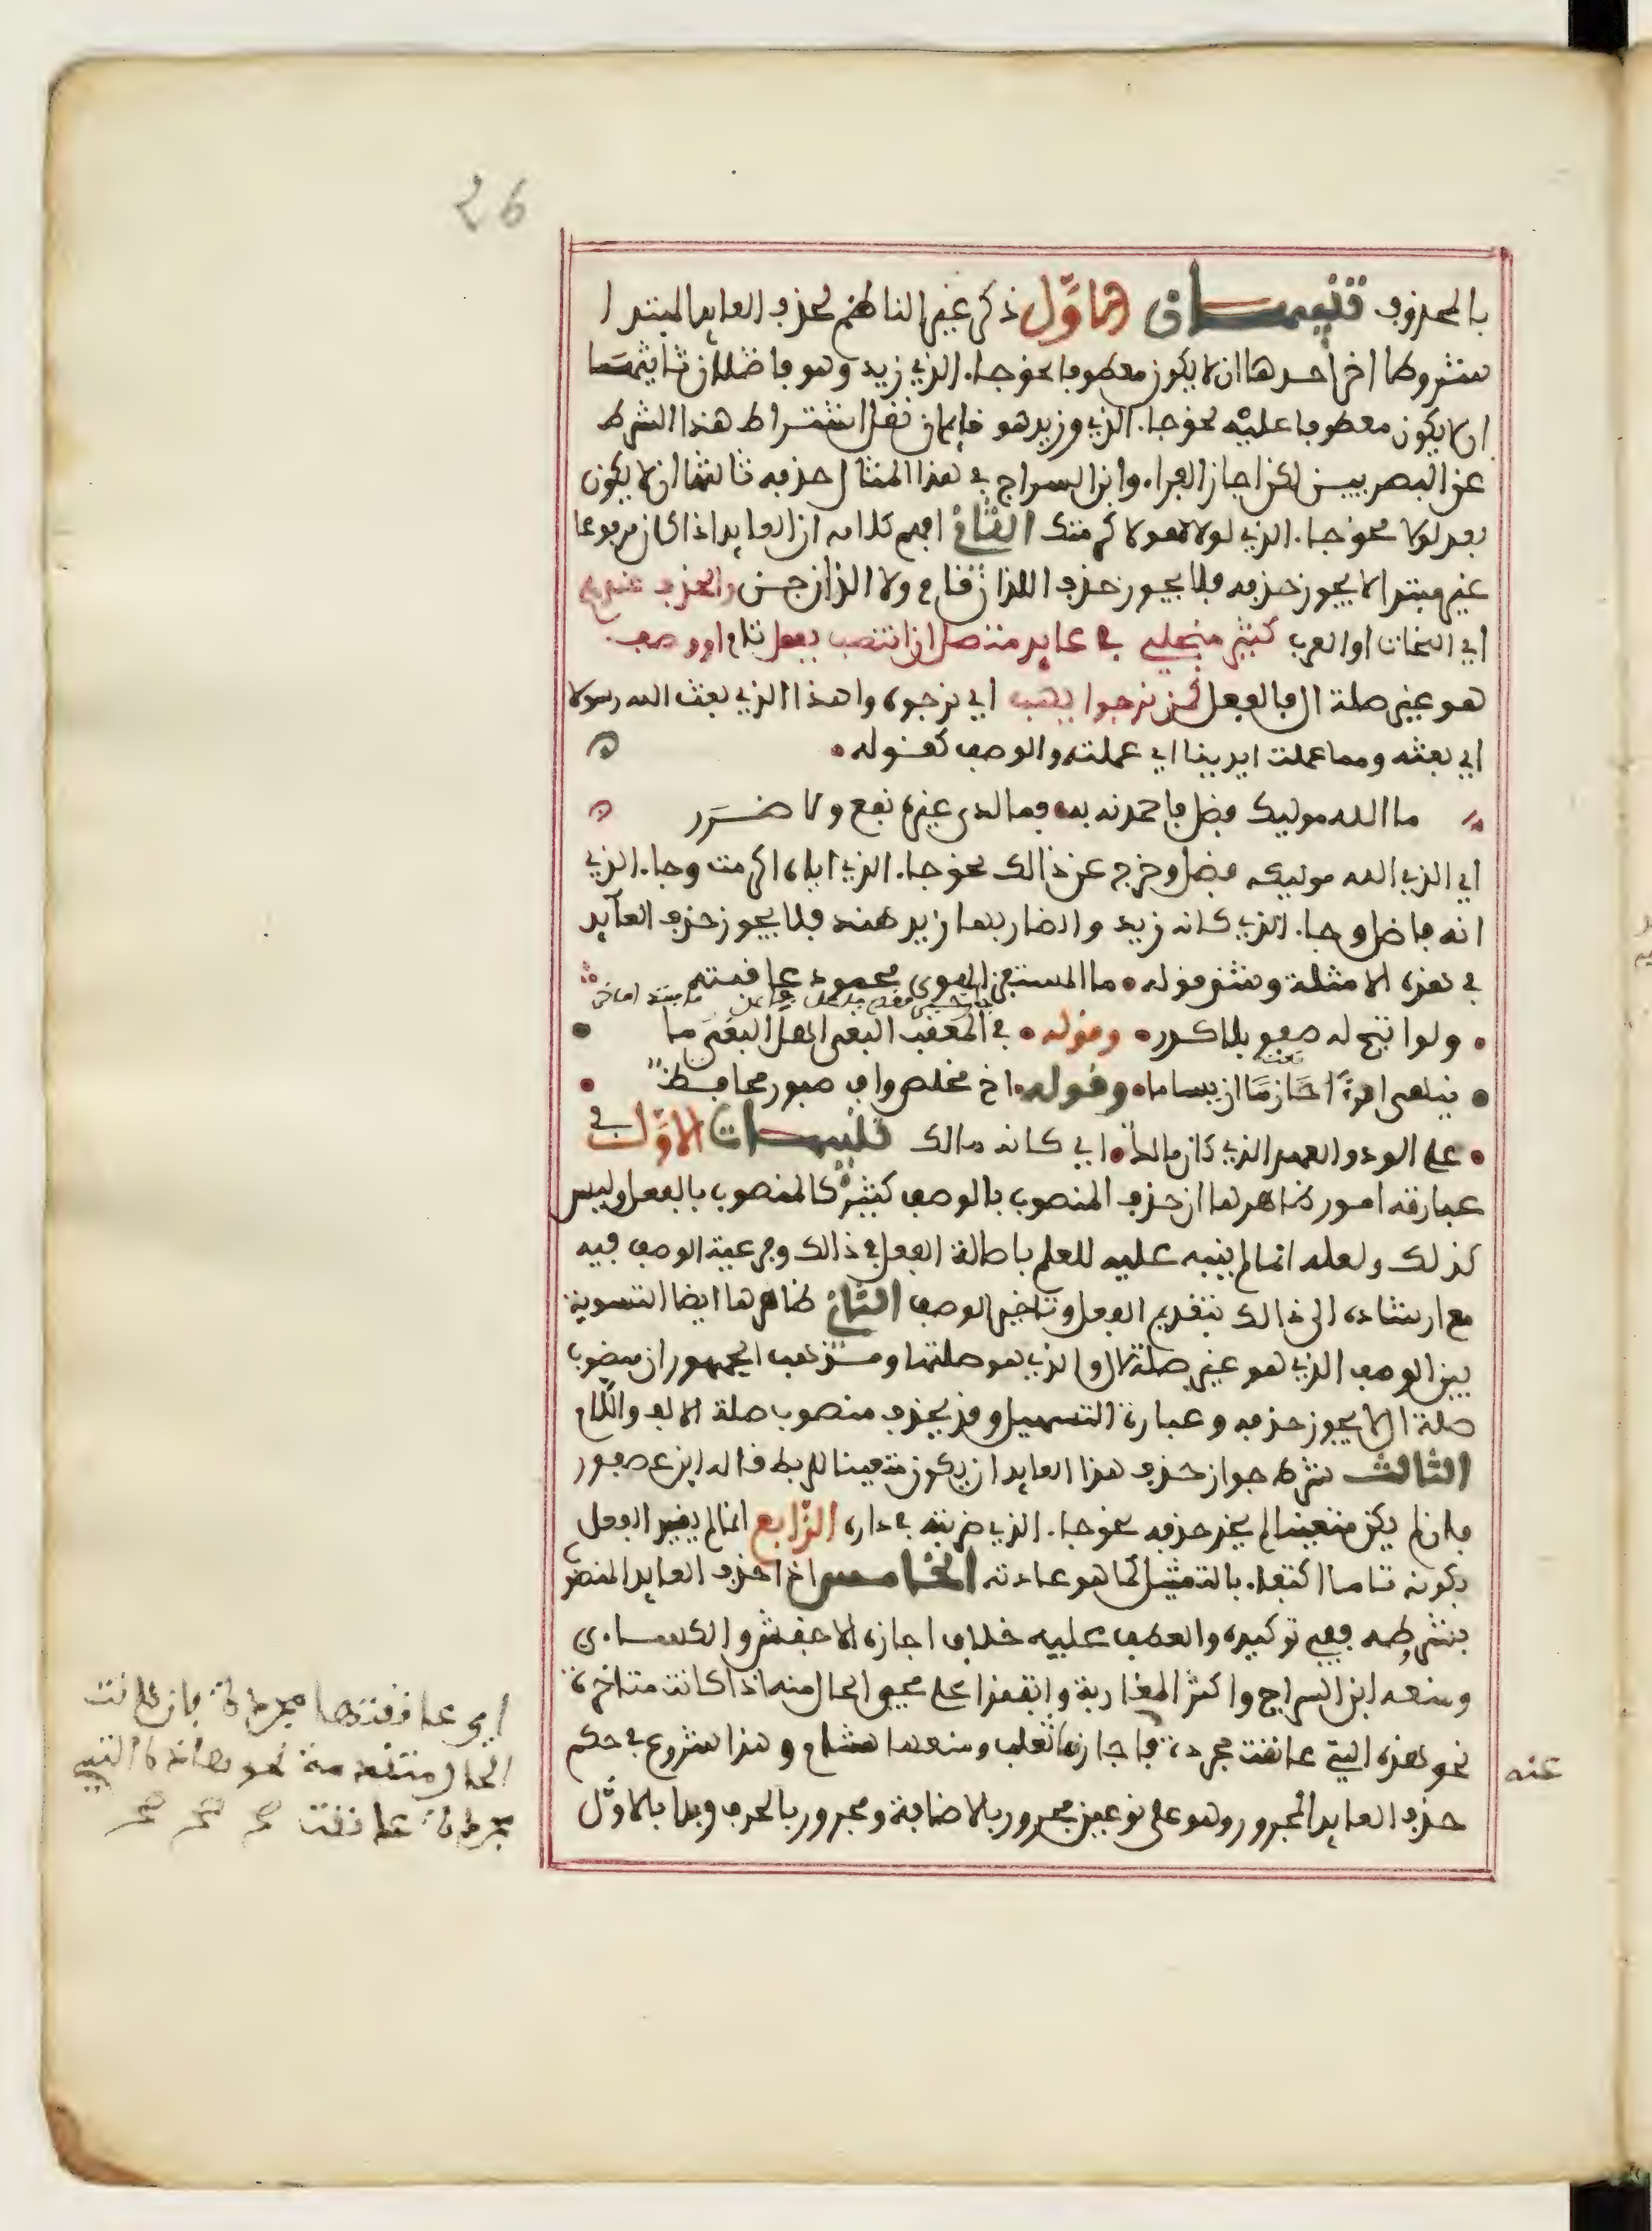 26
بالمحذوف تنبيهان الاول ذكر غير الناظم لحذف العايد المبتدا
شروطا اخر احدها ان لا يكون معطوفا نحو جاء الذي زيد وهو فاضلان ثانيها
ان لا يكون معطوفا عليه نحو جاء الذي هو وزيد قايمان نقل اشتراط هذا الشرط
عن البصريين لكن اجاز الفراء وابن السراج في هذا المثال حذفه ثالثها ان لا يكون
بعد لولا نحو جاء الذي لولا هو لاكرمتك الثاني افهم كلامه ان العايد اذا كان مرفوعا
غير مبتدا لا يجوز حذفه فلا يجوز حذف اللذان قام ولا اللذان جن والحذف عندهم
اي النحات او العرب كثير منجلي في عايد متصل ان انتصب بفعل تام او وصف
هو غير صلة ال فالفعل كمن نرجوا يهب اي نرجوه واهذا الذي بعث الله رسولا
اي بعثه ومما عملت ايدينا اي عملته والوصف كقوله
ما الله موليك فضل فاحمدنه به فما لدى غيره نفع ولا ضرر
اي الذي الله موليكه فضل وخرج عن ذالك نحو جاء الذي اياه اكرمت وجاء الذي
انه فاضل وجاء الذي كانه زيد والضاربها زيد هند فلا يجوز حذف العايد
في هذه الامثلة وشذ قوله ما المستفز الهوى محمود عاقبته
ولو اتيح له صفو بلا كدر وقوله في المعقب البغي اهل البغي ما
ينهى امرءا حازما ان يساما وقوله اخ مخلص واف صبور محافظ
على الود والعهد الذي كان مالك اي كانه مالك تنبيهات الاول في
عبارته امور ظاهرها ان حذف المنصوب بالوصف كثير كالمنصوب بالفعل وليس
كذلك ولعله انما لم ينبه عليه للعلم باصالة الفعل في ذالك وفرعية الوصف فيه
مع ارشاده الى ذالك بتقديم الفعل وتاخير الوصف الثاني ظاهرها ايضا التسوية
بين الوصف الذي هو غير صلة لال والذي هو صلتها ومذهب الجمهور ان منصوب
صلة ال لا يجوز حذفه وعبارة التسهيل وقد يحذف منصوب صلة الالف واللام
الثالث شرط جواز حذف هذا العايد ان يكون متعينا للربط قاله ابن عصفور
فان لم يكن متعينا لم يجز حذفه نحو جاء الذي ضربته في داره الرابع انما لم يقيد الفعل
بكونه تاما اكتفاء بالتمثيل كما هو عادته الخامس اذا حذف العايد المنصوب
بشرطه ففي توكيده والعطف عليه خلاف اجازه الاخفش والكساءي
ومنعه ابن السراج واكثر المغاربة واتفقوا على مجيء الحال منه اذا كانت متاخرة
نحو هذه التي عانقت مجردة فاجازها ثعلب ومنعها هشام وهذا شروع في حكم
حذف العايد المجرور وهو على نوعين مجرور بالاضافة ومجرور بالحرف وبدا بالاول
عنه
اي عانقتها مجردة فان كانت
الحال متقدمة نحو هذه التي
مجردة عانقت